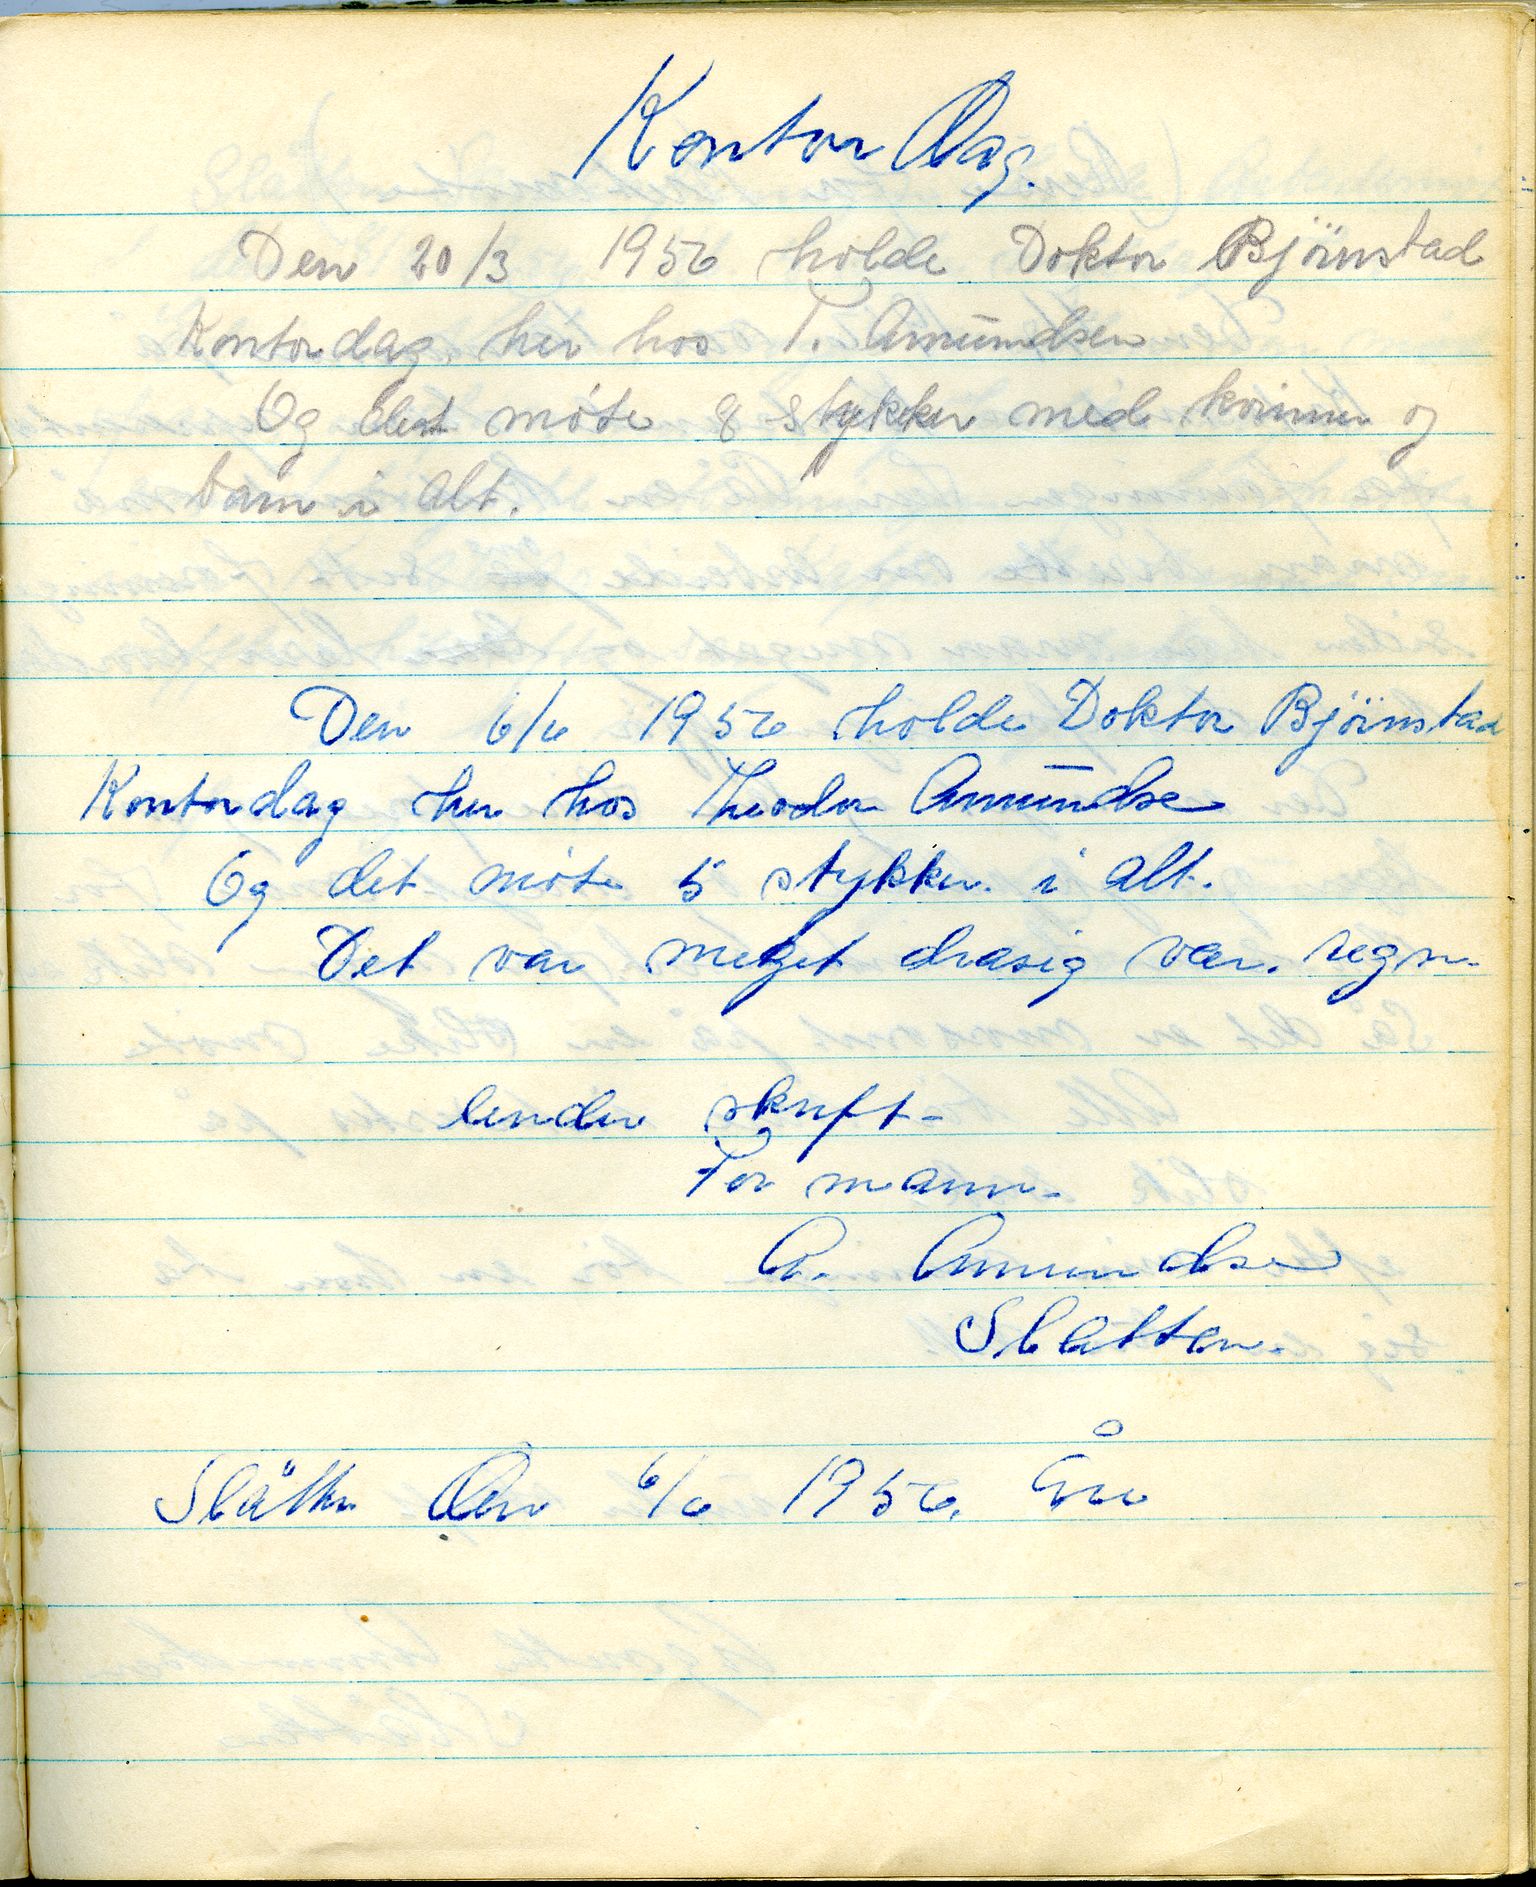 Kontor Dag.
Den 20/3 1956 holde Doktor Björnstad
Kontordag, her hos T. Amundsen
Og det møte 8 stykker med kvinner og
barn i alt.
Den 6/6 1956 holde Doktor Björnstad
Kontordag her hos Theodor Amundse
Og det møte 5 stykker i alt.
Det var meget drasig vær. regn.
under skrift-
For mann-
A. Amundsen
Slatten.
Slåtten Den 6/6 1956.